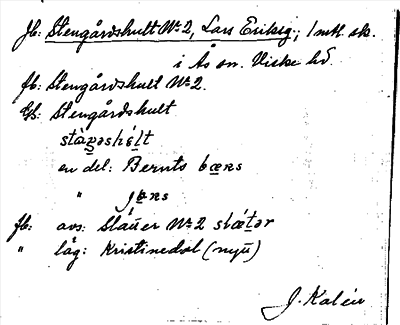 Jb: Stengårdshult No 2, Lars Eriksg.; 1 mtl sk.
i Ås sn. Viske hd.
fb: Stengårdshult No 2.
Gs: Stengårdshult
en del: Bernts bærs
" 
fb: avs: Slåtter No 2
" låg: Kristinedal (nyu)
J. Kalén